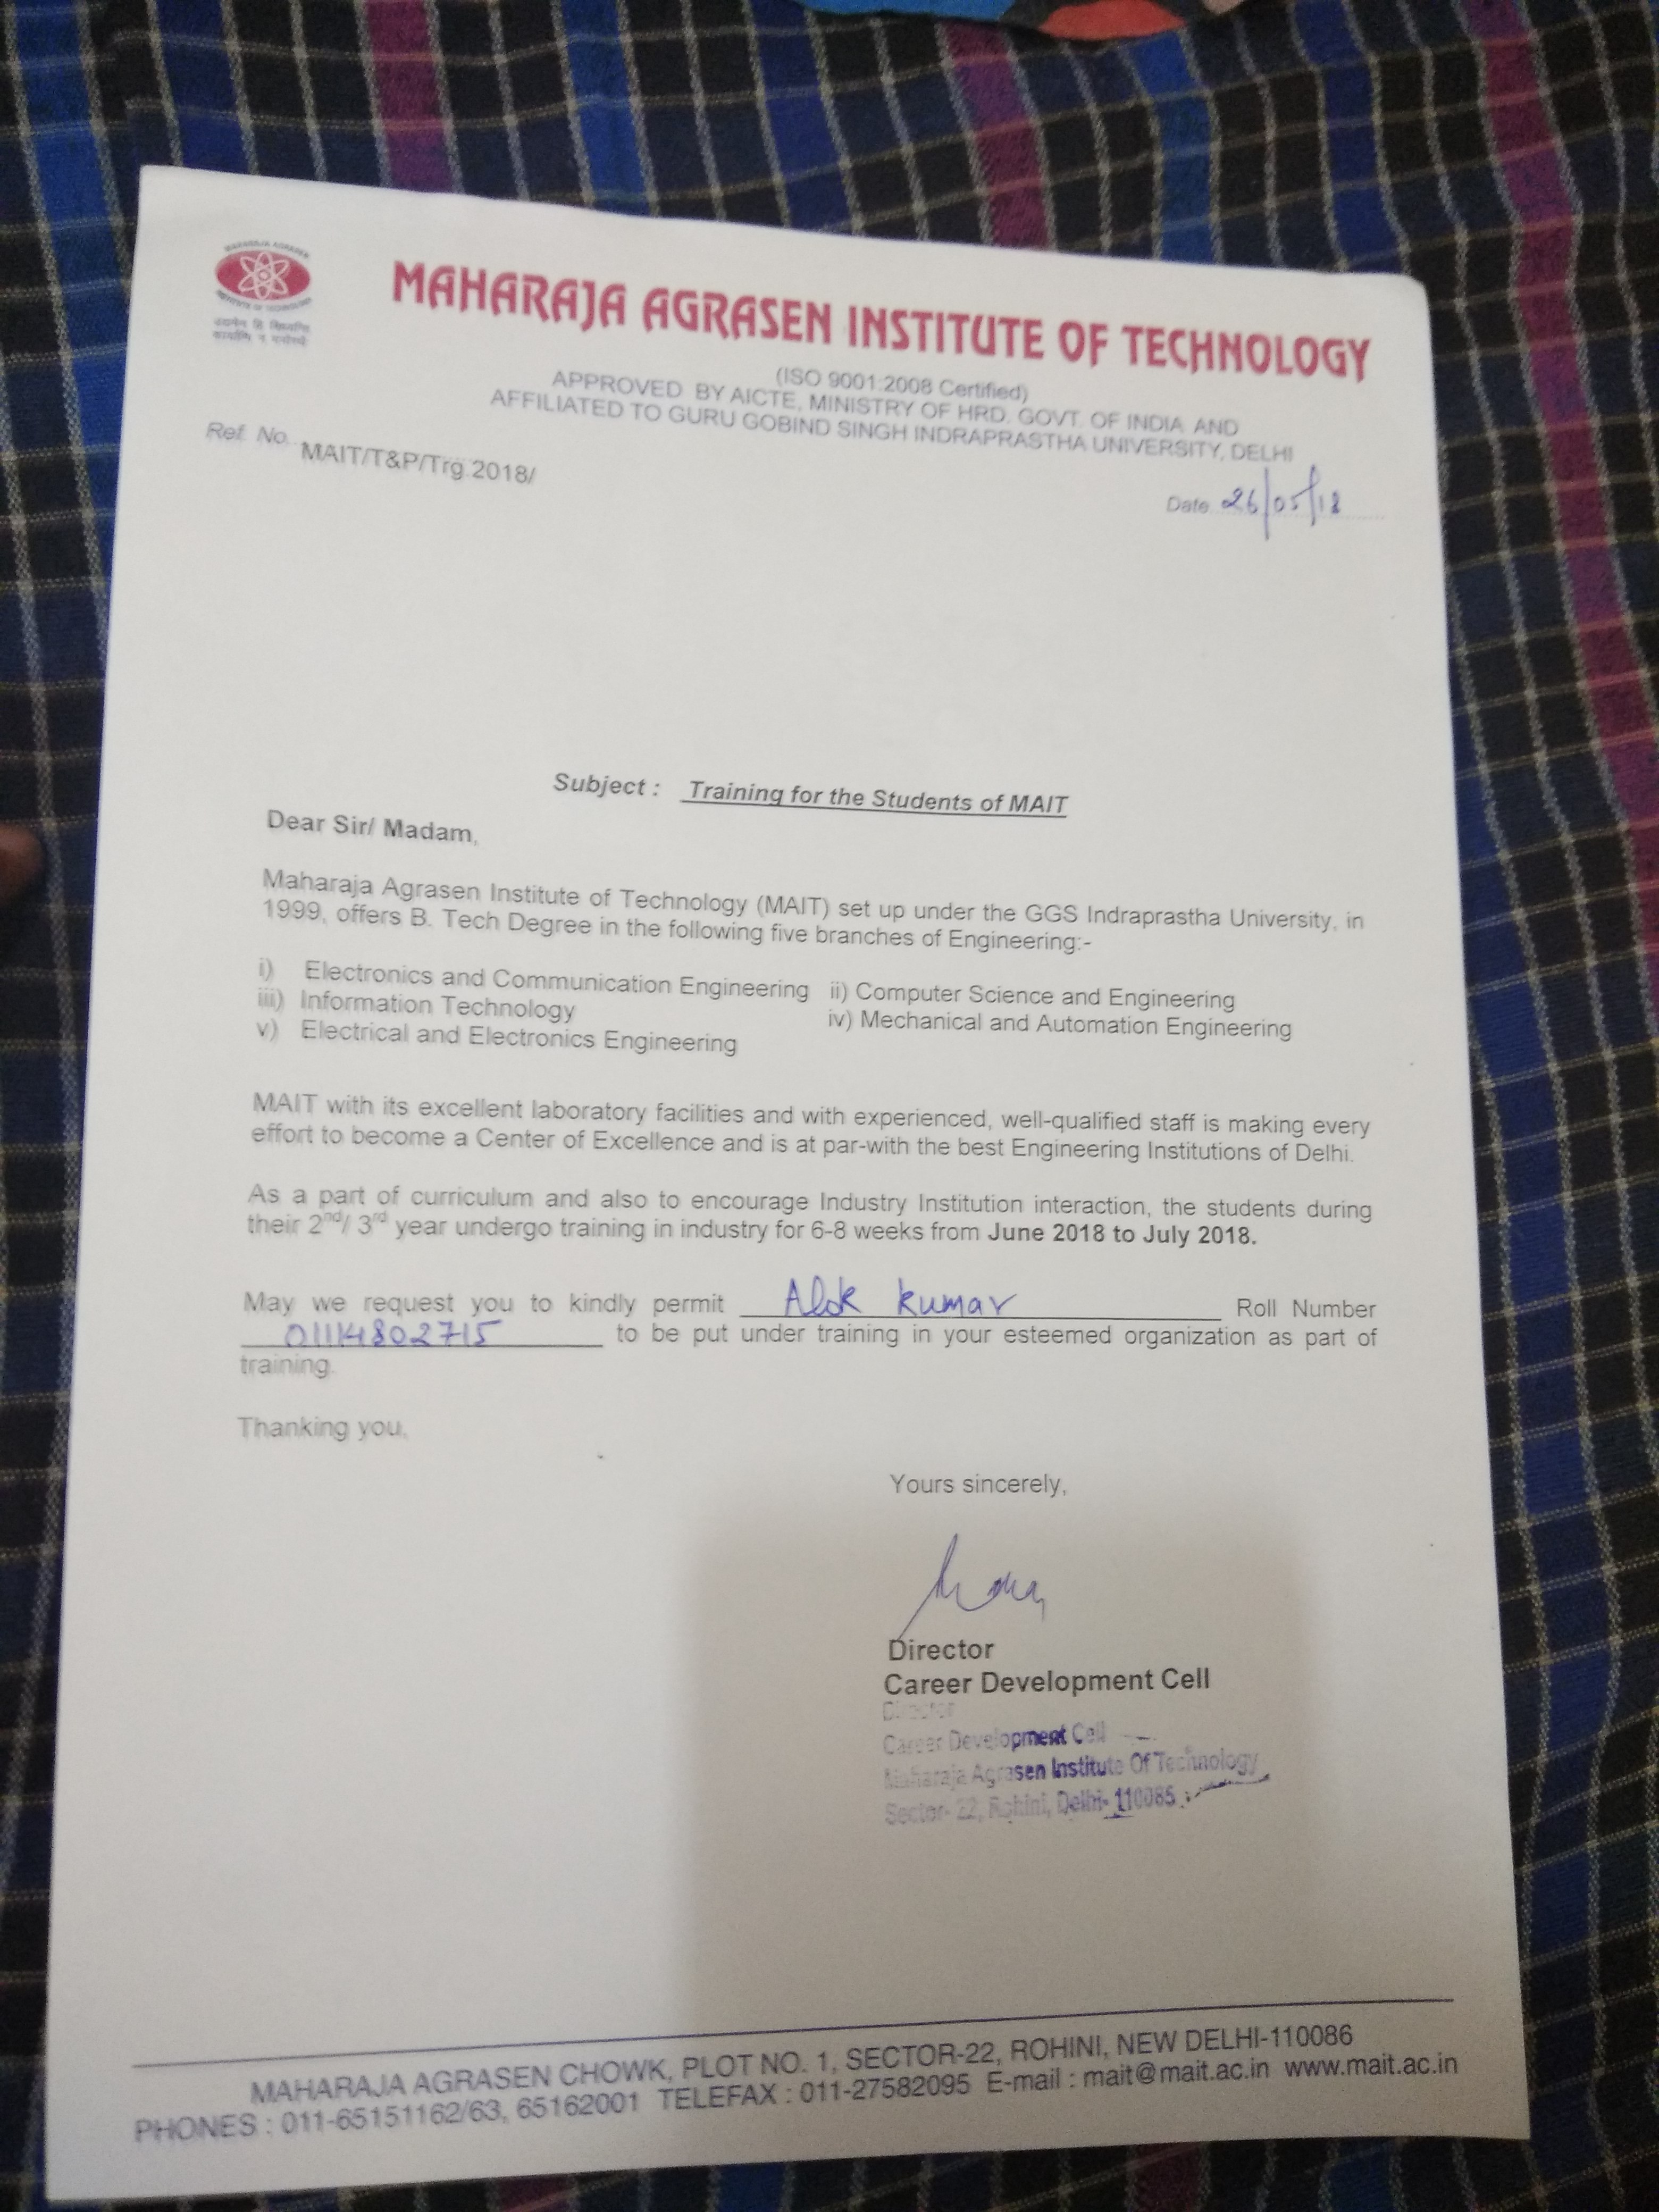 MAHARAJA AGRASEN
INSTITUTE OF TECHNOLOGY
MAHARAJA AGRASEN INSTITUTE OF TECHNOLOGY
(ISO 9001:2008 Certified)
APPROVED BY AICTE, MINISTRY OF HRD, GOVT. OF INDIA AND
AFFILIATED TO GURU GOBIND SINGH INDRAPRASTHA UNIVERSITY, DELHI
Ref. No. MAIT/T&P/Trg.2018/
Date 26/05/18
Subject : Training for the Students of MAIT
Dear Sir/ Madam,
Maharaja Agrasen Institute of Technology (MAIT) set up under the GGS Indraprastha University, in
1999, offers B. Tech Degree in the following five branches of Engineering:-
i) Electronics and Communication Engineering ii) Computer Science and Engineering
iii) Information Technology iv) Mechanical and Automation Engineering
v) Electrical and Electronics Engineering
MAIT with its excellent laboratory facilities and with experienced, well-qualified staff is making every
effort to become a Center of Excellence and is at par-with the best Engineering Institutions of Delhi.
As a part of curriculum and also to encourage Industry Institution interaction, the students during
their 2nd/ 3rd year undergo training in industry for 6-8 weeks from June 2018 to July 2018.
May we request you to kindly permit Alok kumar Roll Number
01114802715 to be put under training in your esteemed organization as part of
training.
Thanking you,
Yours sincerely,
Director
Career Development Cell
Director
Career Development Cell
Maharaja Agrasen Institute Of Technology
Sector- 22, Rohini, Delhi- 110085
MAHARAJA AGRASEN CHOWK, PLOT NO. 1, SECTOR-22, ROHINI, NEW DELHI-110086
PHONES : 011-65151162/63, 65162001 TELEFAX : 011-27582095 E-mail : mait@mait.ac.in www.mait.ac.in